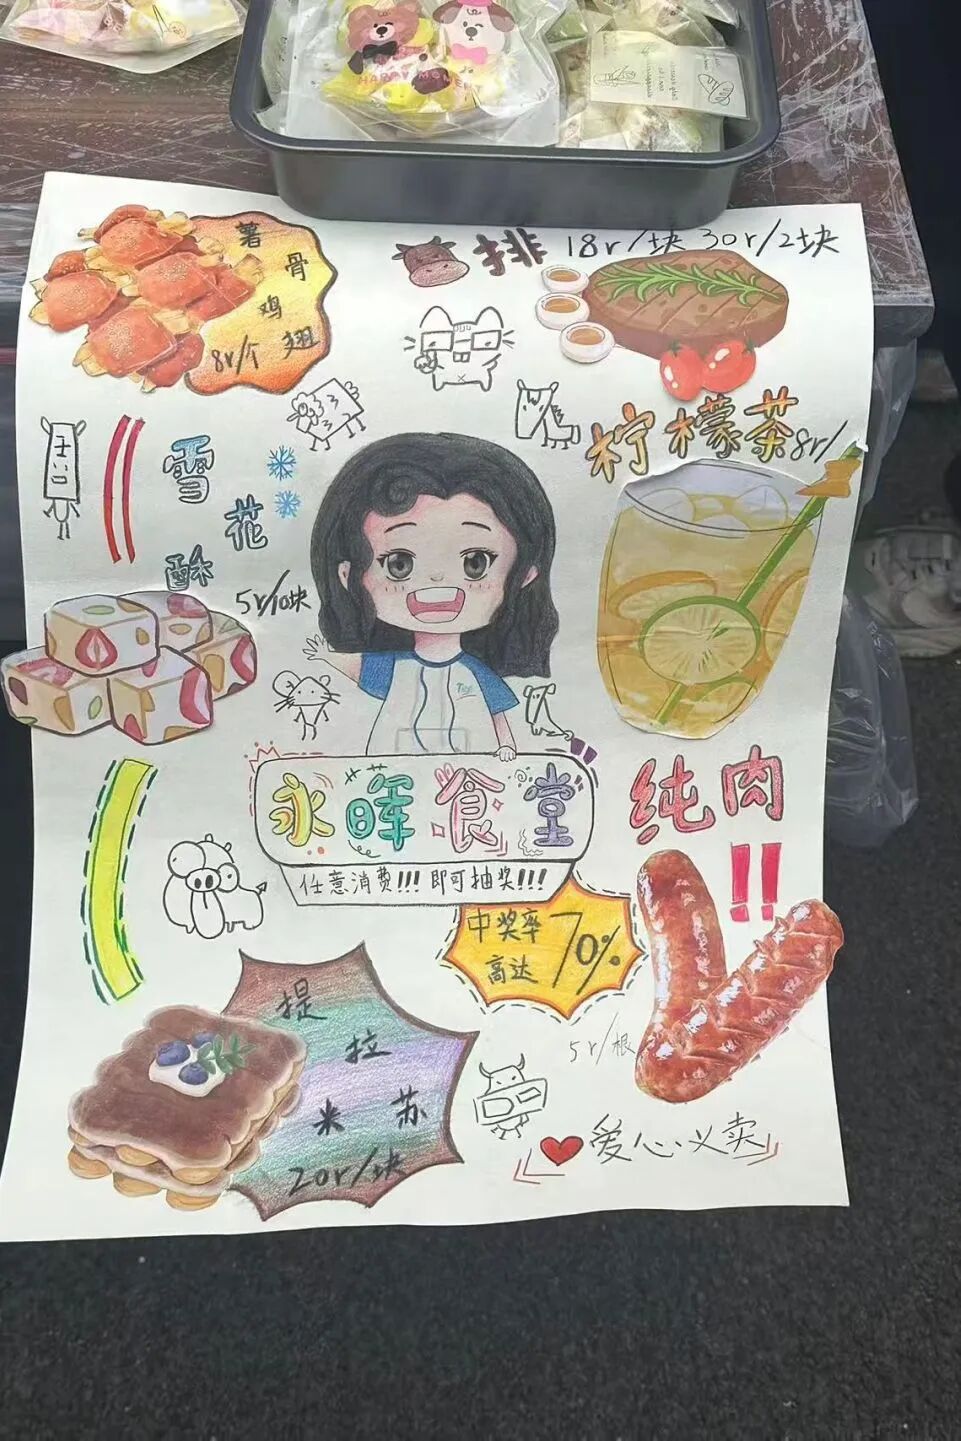 HAPPY MOMENT
薯骨鸡翅
8r/个
排 18r/块 30r/2块
柠檬茶 8r/
雪花酥
5r/10块
永晖食堂
任意消费!!! 即可抽奖!!!
中奖率
高达 70%
纯肉
!!
5r/根
提拉米苏
20r/块
爱心义卖